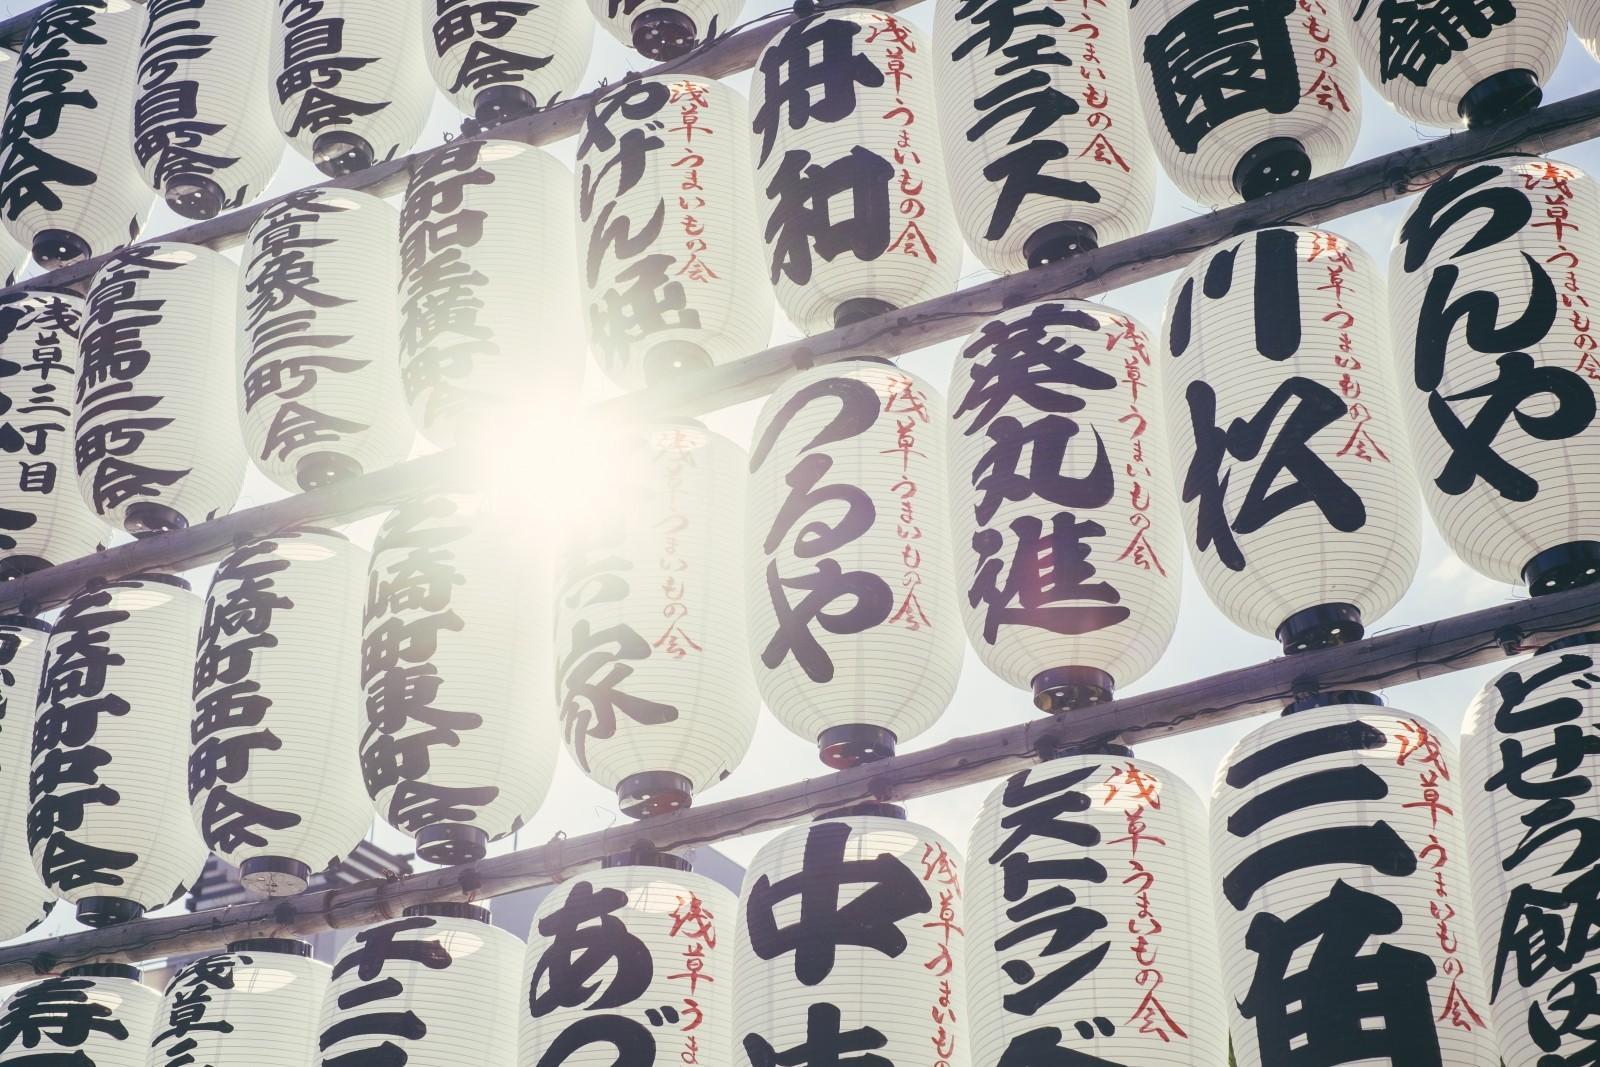 浅草うまいもの会
やげん堀
浅草うまいもの会
舟和
うまいもの会
チェラス
いもの会
園
町会
目町会
自町会
町会
浅草三丁目
浅草馬二町会
浅草象三町会
浅草うまいもの会
つるや
浅草うまいもの会
葵丸進
浅草うまいもの会
川松
浅草うまいもの会
ちんや
芝崎町中町会
芝崎町西町会
芝崎町東町会
浅草うまいもの会
家
浅草うま
あづ
浅草うまいも
中
浅草うまいもの会
ストラング
浅草うまいもの会
三角
どぜう飯田
寿
浅草三
千二